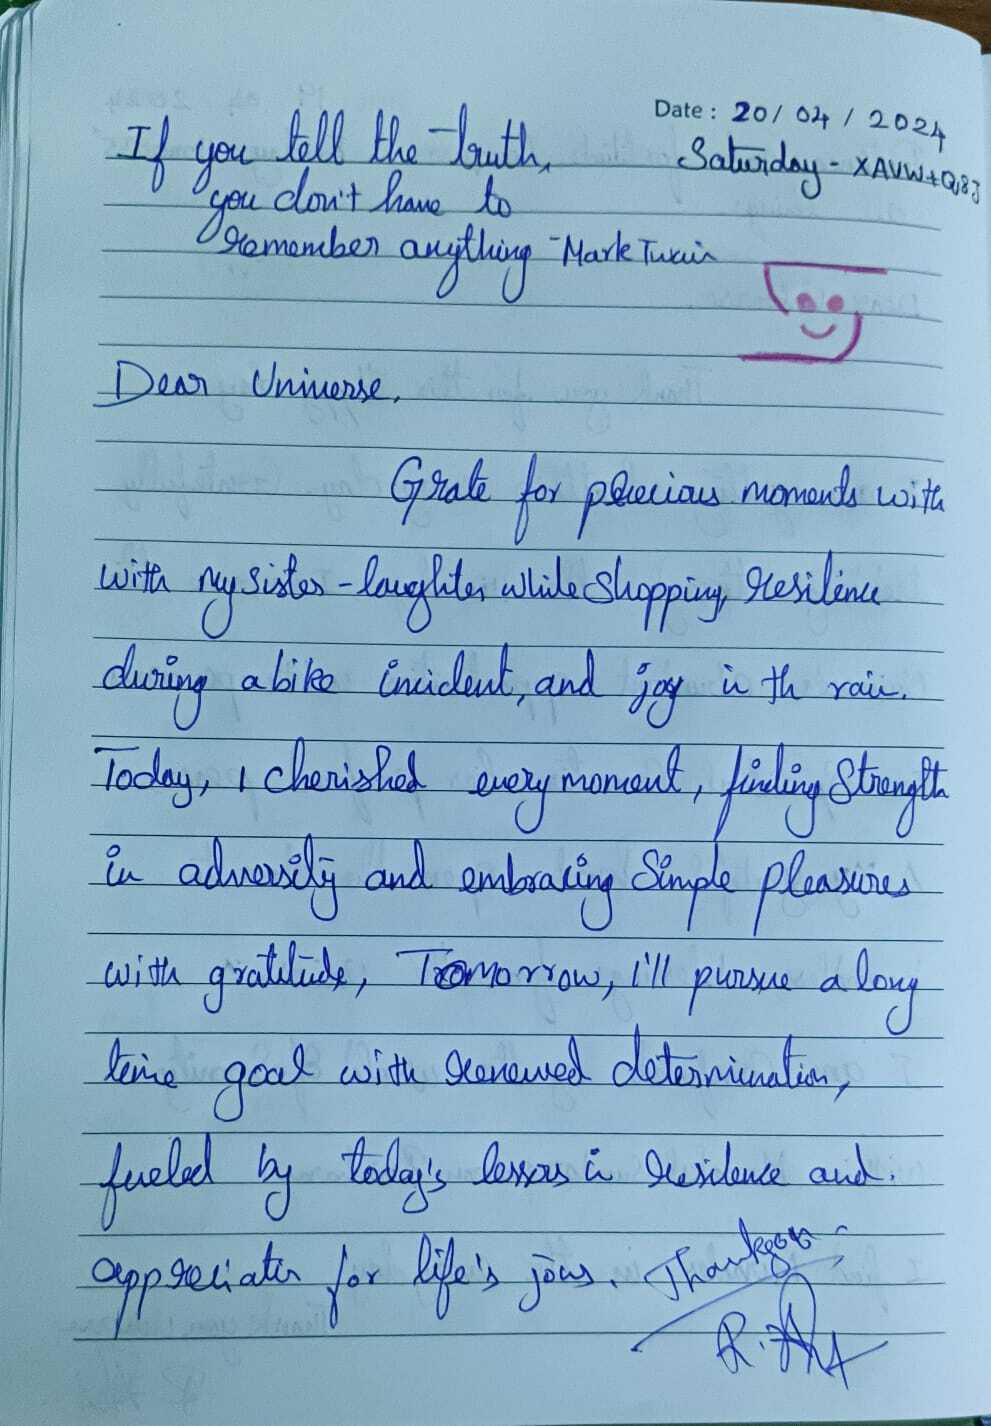 Date : 20/ 04 / 2024
If you tell the truth,
Saturday - XAVW+Q83
you don't have to
remember anything - Mark Twain
Dear Universe,
Grate for precious moments with
with my sister - laughter, while Shopping, resilence
during a bike incident, and joy in th rain.
Today, I cherished every moment, finding Strength
in adversity and embracing Simple pleasures
with gratitude, Tomorrow, I'll pursue a long
time goal with renewed determination,
fueled by today's lessons in resilence and.
appreciation for life's joys. Thankyou